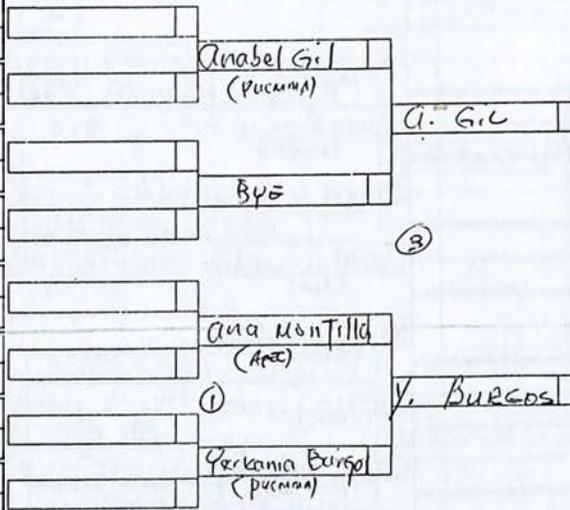 Anabel Gil
(PUCMMA)
A. GIL
BYE
3
Ana Montilla
(APEC)
1
Y. BURGOS
Yerkania Burgos
(PUCMMA)